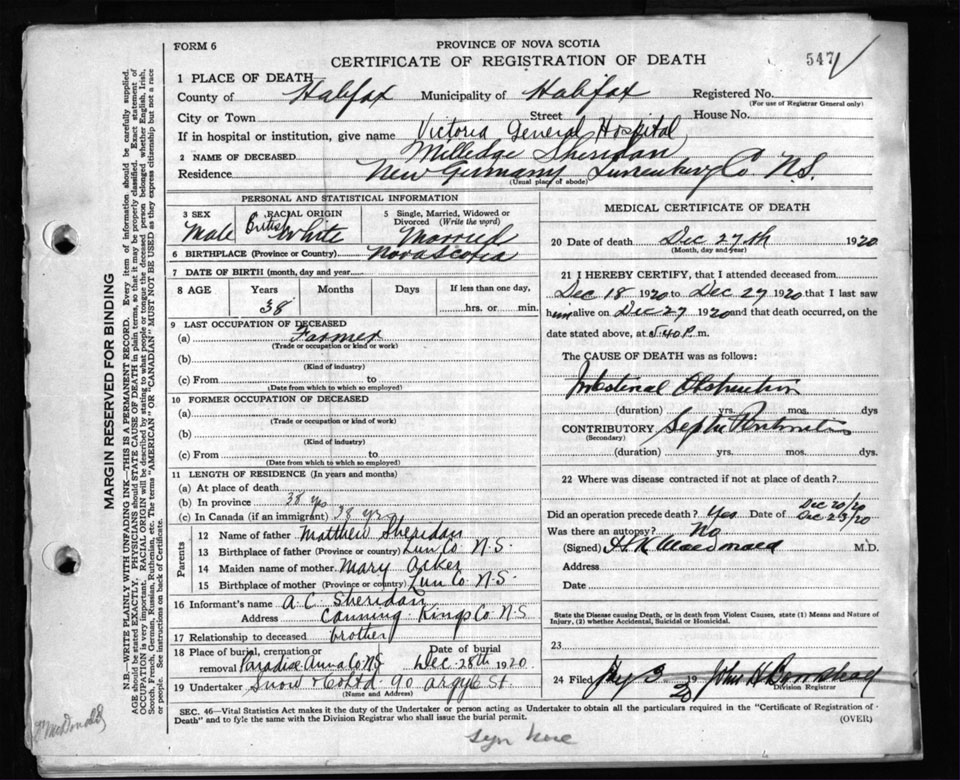 FORM 6
PROVINCE OF NOVA SCOTIA
CERTIFICATE OF REGISTRATION OF DEATH
547
1 PLACE OF DEATH
County of Halifax Municipality of Halifax Registered No.
(For use of Registrar General only)
City or Town Street House No.
If in hospital or institution, give name Victoria General Hospital
2 NAME OF DECEASED Milledge Sheridan
Residence New Germany Lunenburg Co N.S.
(Usual place of abode)
PERSONAL AND STATISTICAL INFORMATION
3 SEX Male
RACIAL ORIGIN British White
5 Single, Married, Widowed or Divorced (Write the word) Married
6 BIRTHPLACE (Province or Country) Nova Scotia
7 DATE OF BIRTH (month, day and year)
8 AGE Years Months Days If less than one day,
38 hrs. or min.
9 LAST OCCUPATION OF DECEASED
(a) Farmer
(Trade or occupation or kind or work)
(b)
(Kind of industry)
(c) From to
(Date from which to which so employed)
10 FORMER OCCUPATION OF DECEASED
(a)
(Trade or occupation or kind of work)
(b)
(Kind of industry)
(c) From to
(Date from which to which so employed)
11 LENGTH OF RESIDENCE (In years and months)
(a) At place of death
(b) In province 38 yrs
(c) In Canada (if an immigrant) 38 yrs
Parents
12 Name of father Matthew Sheridan
13 Birthplace of father (Province or country) Lun Co N.S.
14 Maiden name of mother Mary Acker
15 Birthplace of mother (Province or country) Lun Co N.S.
16 Informant's name A.C. Sheridan
Address Canning Kings Co N.S
17 Relationship to deceased brother
18 Place of burial, cremation or removal Paradise Anna Co NS Date of burial Dec 28th 1920
19 Undertaker Snow & Co Ltd. 90 Argyle St.
(Name and address)
MEDICAL CERTIFICATE OF DEATH
20 Date of death Dec 27th 1920
(Month, day and year)
21 I HEREBY CERTIFY, that I attended deceased from
Dec 18 1920 to Dec 27 1920 that I last saw
him alive on Dec 27 1920 and that death occurred, on the
date stated above, at 5.40 P. m.
The CAUSE OF DEATH was as follows:
Intestinal Obstruction
(duration) yrs. mos. dys
CONTRIBUTORY Septic Peritonitis
(Secondary)
(duration) yrs. mos. dys.
22 Where was disease contracted if not at place of death?
Did an operation precede death? Yes Date of Dec 20/20
Dec 23/20
Was there an autopsy? No
(Signed) H K MacDonald M.D.
Address
Date
State the Disease causing Death, or in death from Violent Causes, state (1) Means and Nature of
Injury, (2) whether Accidental, Suicidal or Homicidal.
23
24 Filed 3 19
Division Registrar
SEC. 46—Vital Statistics Act makes it the duty of the Undertaker or person acting as Undertaker to obtain all the particulars required in the "Certificate of Registration of
Death" and to fyle the same with the Division Registrar who shall issue the burial permit. (OVER)
MARGIN RESERVED FOR BINDING
N.B.—WRITE PLAINLY WITH UNFADING INK—THIS IS A PERMANENT RECORD. Every item of information should be carefully supplied.
AGE should be stated EXACTLY. PHYSICIANS should STATE CAUSE OF DEATH in plain terms, so that it may be properly classified. Exact statement of
OCCUPATION is very important. RACIAL ORIGIN will be described by stating to what people or tongue the deceased person belonged whether English, Irish,
Scotch, French, German, Russian, Ruthenian, etc. The terms "AMERICAN" OR "CANADIAN" MUST NOT BE USED as they express citizenship but not a race
or people. See instructions on back of Certificate.
McDonald